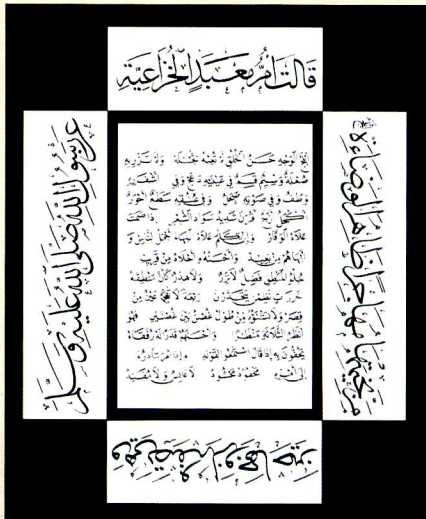 قالت أم معبد الخزاعية
عن رسول الله صلى الله عليه وسلم
وهي تصفه لزوجها حين
مر بخيمتها مهاجرا ظاهر الوضاءة
أبلج الوجه حسن الخلق لم تعبه نحلة ولا تزريه
صعلة وسيم قسيم في عينيه دعج وفي أشفاره
وطف وفي صوته صحل وفي عنقه سطع أحور
أكحل أزج أقرن شديد سواد الشعر إذا صمت
علاه الوقار وإن تكلم علاه البهاء أجمل الناس و
أبهاهم من بعيد وأحسنه وأحلاه من قريب
حلو المنطق فصل لا نزر ولا هذر كأن منطقه
خرزات نظم يتحدرن ربعة لا تقحمه عين من
قصر ولا تشنؤه من طول غصن بين غصنين فهو
أنضر الثلاثة منظرا وأحسنهم قدرا له رفقاء
يحفون به إذا قال استمعوا لقوله وإذا أمر تبادروا
إلى أمره محفود محشود لا عابس ولا مفند